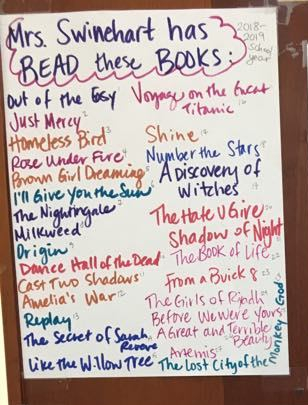 Mrs. Swinehart has
READ these BOOKS:
2018-
2019
School
year
Out of the Easy
Just Mercy 2
Homeless Bird 3
Rose Under Fire 4
Brown Girl Dreaming 5
I'll Give You the Sun 6
The Nightingale 7
Milkweed 8
Origin 9
Dance Hall of the Dead 10
Cast Two Shadows 11
Amelia's War 12
Replay 13
The Secret of Sarah
Revere
Like the Willow Tree 15
Voyage on the Great
Titanic 16
Shine 17
Number the Stars 18
A Discovery of
Witches 19
The Hate U Give 20
Shadow of Night 21
The Book of Life 22
From a Buick 8 23
The Girls of Riyadh 24
Before We Were Yours
A Great and Terrible
Beauty
Artemis 27
The Lost City of the
Monkey God